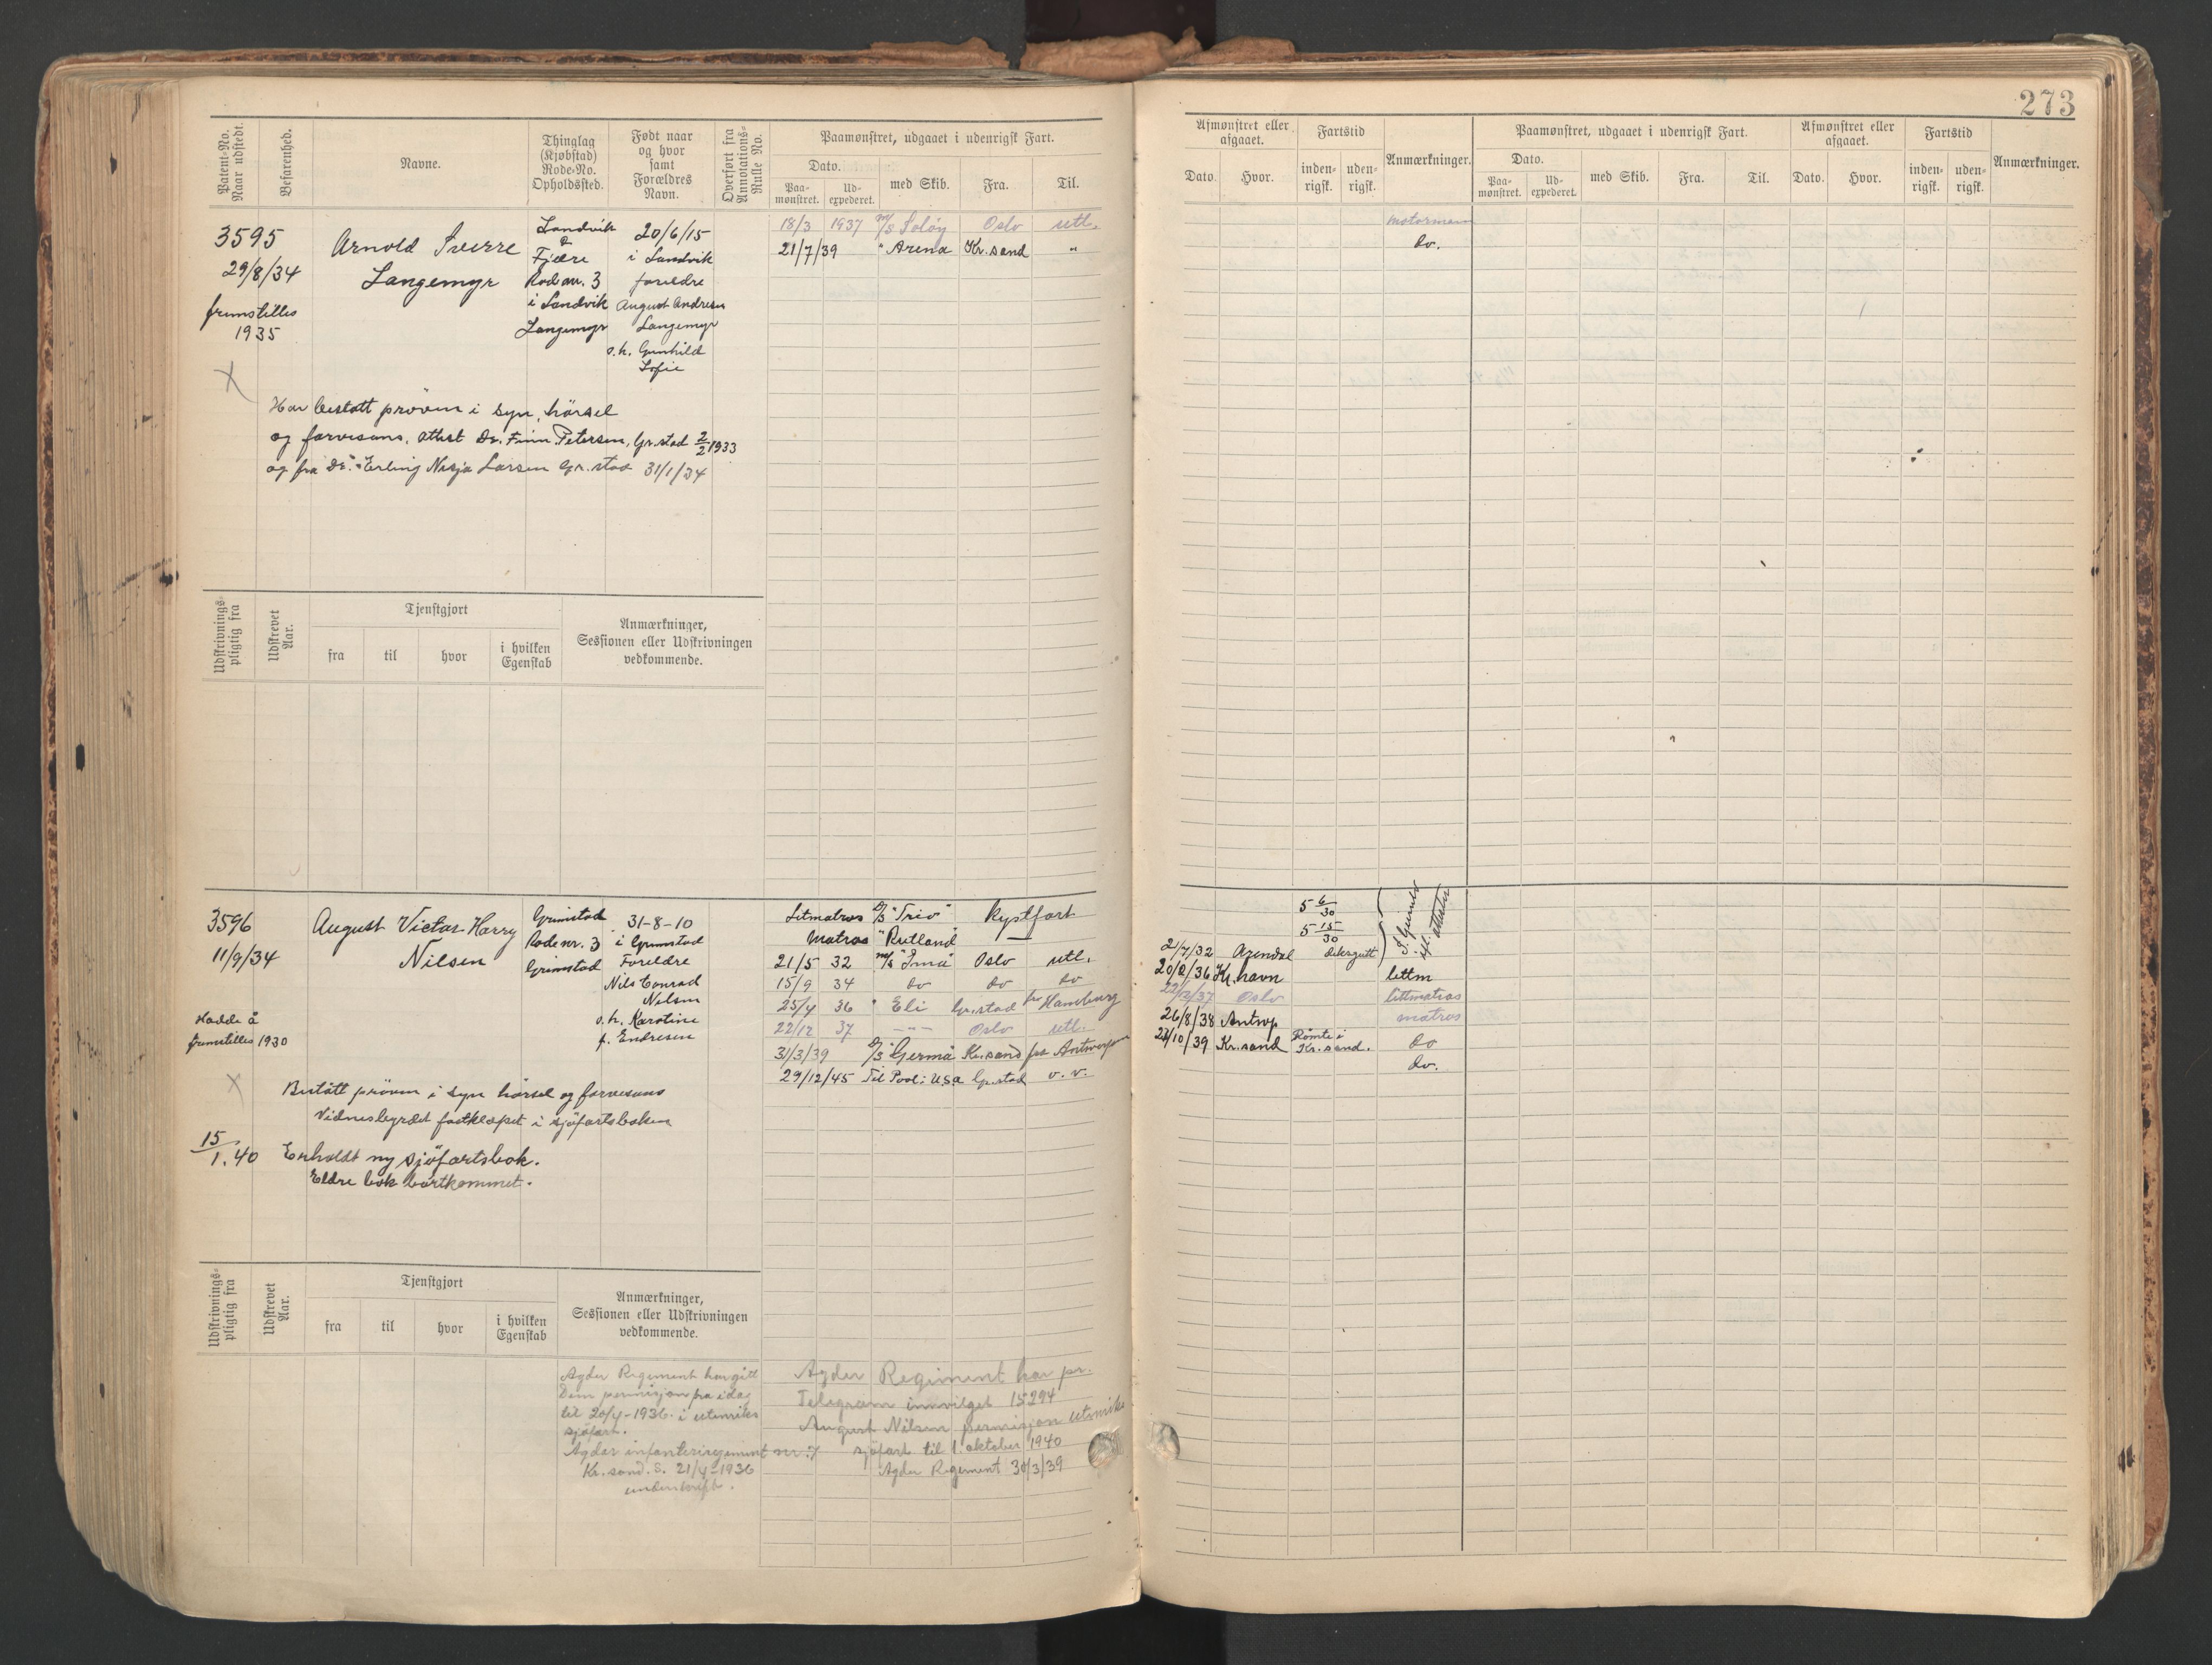 273
Patent-No. Naar udstedt.
Befarenhed.
Navne.
Thinglag (Kjøbstad) Rode-No. Opholdssted.
Født naar og hvor samt Forældres Navn.
Overført fra Annotations-Rulle No.
Paamønstret, udgaaet i udenrigsk Fart.
Dato.
Paa-mønstret.
Ud-expederet.
med Skib.
Fra.
Til.
Afmønstret eller afgaaet.
Dato.
Hvor.
Fartstid
inden-rigsk.
uden-rigsk.
Anmærkninger.
Paamønstret, udgaaet i udenrigsk Fart.
Dato.
Paa-mønstret.
Ud-expederet.
med Skib.
Fra.
Til.
Afmønstret eller afgaaet.
Dato.
Hvor.
Fartstid
inden-rigsk.
uden-rigsk.
Anmærkninger.
3595
29/8/34
fremstilles
1935
X
Arnold Sverre
Langemyr
Landvik
&
Fjære
Rode nr. 3
i Landvik
Langemyr
20/6/15
i Landvik
foreldre
August Andresen
Langemyr
o.h. Gunhild
Sofie
18/3 1937 m/s Soløy Oslo utl.
motormann
21/7/39 " Arena Kr.sand "
do.
Har bestått prøven i syn, hørsel
og farvesans, attest Dr. Finn Petersen, Gr.stad 2/2 1933
og fra Dr. Erling Nesja Larsen Gr.stad 31/1/34
Udskrivnings-pligtig fra
Udskrevet Aar.
Tjenstgjort
fra
til
hvor
i hvilken Egenskab
Anmærkninger,
Sessionen eller Udskrivningen
vedkommende.
3596
11/9/34
Hadde å
fremstilles 1930
X
August Victor Harry
Nilsen
Grimstad
Rode nr. 3
Grimstad
31-8-10
i Grimstad
Foreldre
Nils Conrad
Nilsen
o.h. Karoline
f. Endresen
Letmatros D/S "Trio" Kystfart
5 6/30
Matros "Rutland"
5 15/30
21/5 32 m/s Oslo utl.
21/7/32 Arendal
15/9 34 do do do
Kr.havn lettm
25/4 36 " Eli Gr.stad for Hamburg
Oslo lettmatros
22/12 37 -"- Oslo utl.
26/8/38 Antwp matros
31/3/39 D/S "Germa" Kr.sand fra Antwerpen
23/10/39 Kr.sand Rømte i Kr.sand. do
29/12/45 Til Pool i USA Gr.stad v.v.
do.
Bestått prøven i syn hørsel og farvesans
Vidnesbyrdet fastklæpet i sjøfartsboken
15/1.40 Erholdt ny sjøfartsbok.
Eldre bok bortkommet.
Udskrivnings-pligtig fra
Udskrevet Aar.
Tjenstgjort
fra
til
hvor
i hvilken Egenskab
Anmærkninger,
Sessionen eller Udskrivningen
vedkommende.
Agder Regiment har gitt
Dem permisjon fra idag
til 20/4-1936 i utenriks
sjøfart.
Agder infanteriregiment nr. 7
Kr.sand. S. 21/4-1936
underskrift.
Agder Regiment har pr.
Telegram innvilget 15294
August Nilsen permisjon utenriks
sjøfart til 1 oktober 1940
Agder Regiment 30/3/39